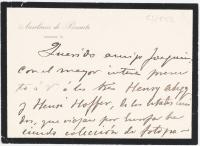 Aureliano de Beruete
Querido amigo Joaquín
con el mayor interés presen
to á V. á los Sres Henry
y Henri Hoffer, de los Estados Uni
dos, que viajan por Europa ha
ciendo colección de fotogra-